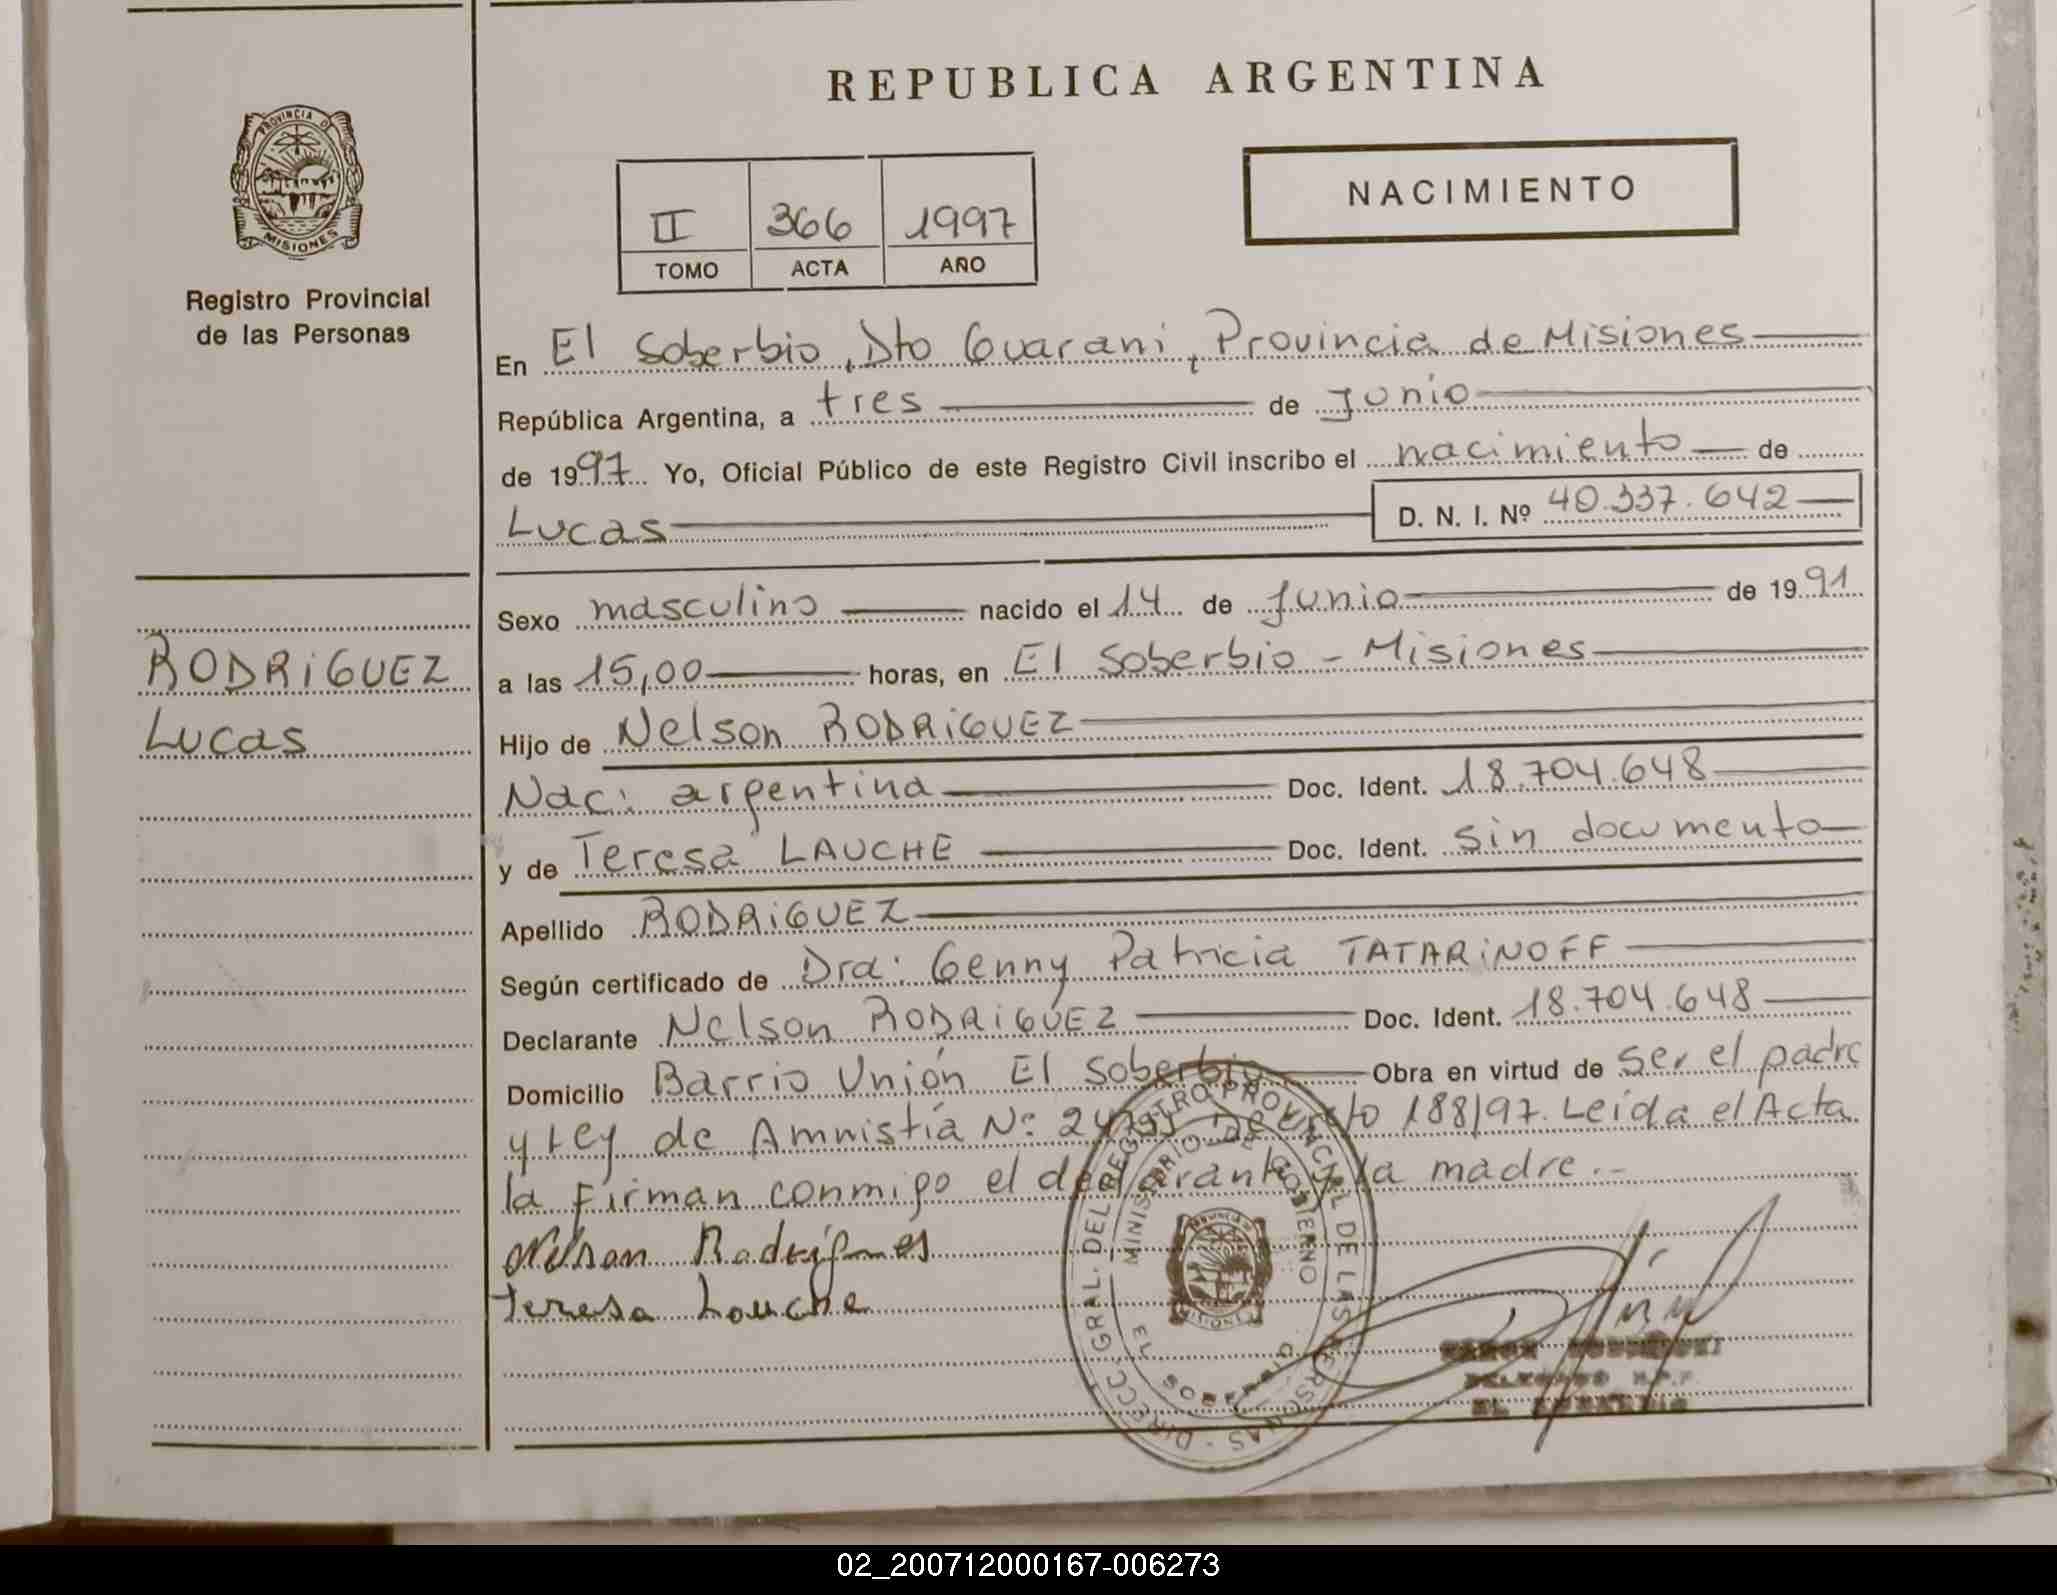 REPUBLICA ARGENTINA
PROVINCIA DE
MISIONES
Registro Provincial
de las Personas
NACIMIENTO
II 366 1997
TOMO ACTA AÑO
En El Soberbio, Dto Guarani, Provincia de Misiones
República Argentina, a tres de Junio
de 1997 Yo, Oficial Público de este Registro Civil inscribo el nacimiento de
Lucas D. N. I. Nº 40.337.642
Sexo masculino nacido el 14 de Junio de 1991
RODRIGUEZ
Lucas
a las 15,00 horas, en El Soberbio - Misiones
Hijo de Nelson RODRIGUEZ
Nac: argentina Doc. Ident. 18.704.648
y de Teresa LAUCHE Doc. Ident. sin documento
Apellido RODRIGUEZ
Según certificado de Dra: Genny Patricia TATARINOFF
Declarante Nelson RODRIGUEZ Doc. Ident. 18.704.648
Domicilio Barrio Unión El Soberbio Obra en virtud de ser el padre
y Ley de Amnistía Nº Decreto 188/97. Leída el Acta
la firman conmigo el declarante y la madre.-
Nelson Rodrigues
teresa Lauche
DIRECC. GRAL. DEL REGISTRO PROVINCIAL DE LAS PERSONAS
MINISTERIO DE GOBIERNO
PROVINCIA DE
MISIONES
EL SOBERBIO
EL SOBERBIO
02_200712000167-006273